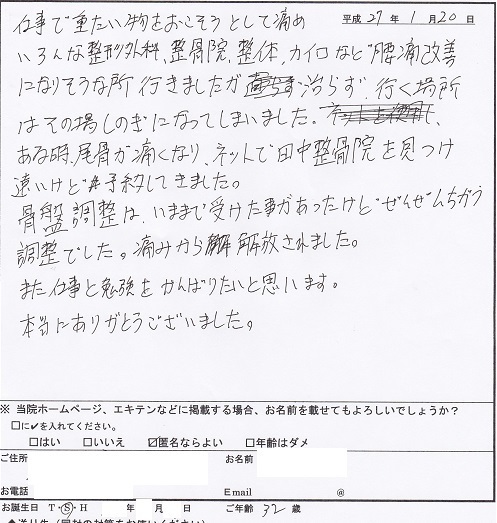 平成 27 年 1 月 20 日
仕事で重たい物をおこそうとして痛め
いろんな整形外科、整骨院、整体、カイロなど腰痛改善
になりそうな所 行きましたが 治らず、行く場所
はその場しのぎになってしまいました。
ある時、尾骨が痛くなり、ネットで田中整骨院を見つけ
遠いけど予約してきました。
骨盤調整は、いままで受けた事があったけどぜんぜんちがう
調整でした。痛みから解放されました。
また仕事と勉強をがんばりたいと思います。
本当にありがとうございました。
※ 当院ホームページ、エキテンなどに掲載する場合、お名前を載せてもよろしいでしょうか?
□に✔を入れてください。
□はい □いいえ ☑匿名ならよい □年齢はダメ
ご住所 お名前
お電話 Email @
お誕生日 T・Ⓢ・H 年 月 日 ご年齢 32 歳